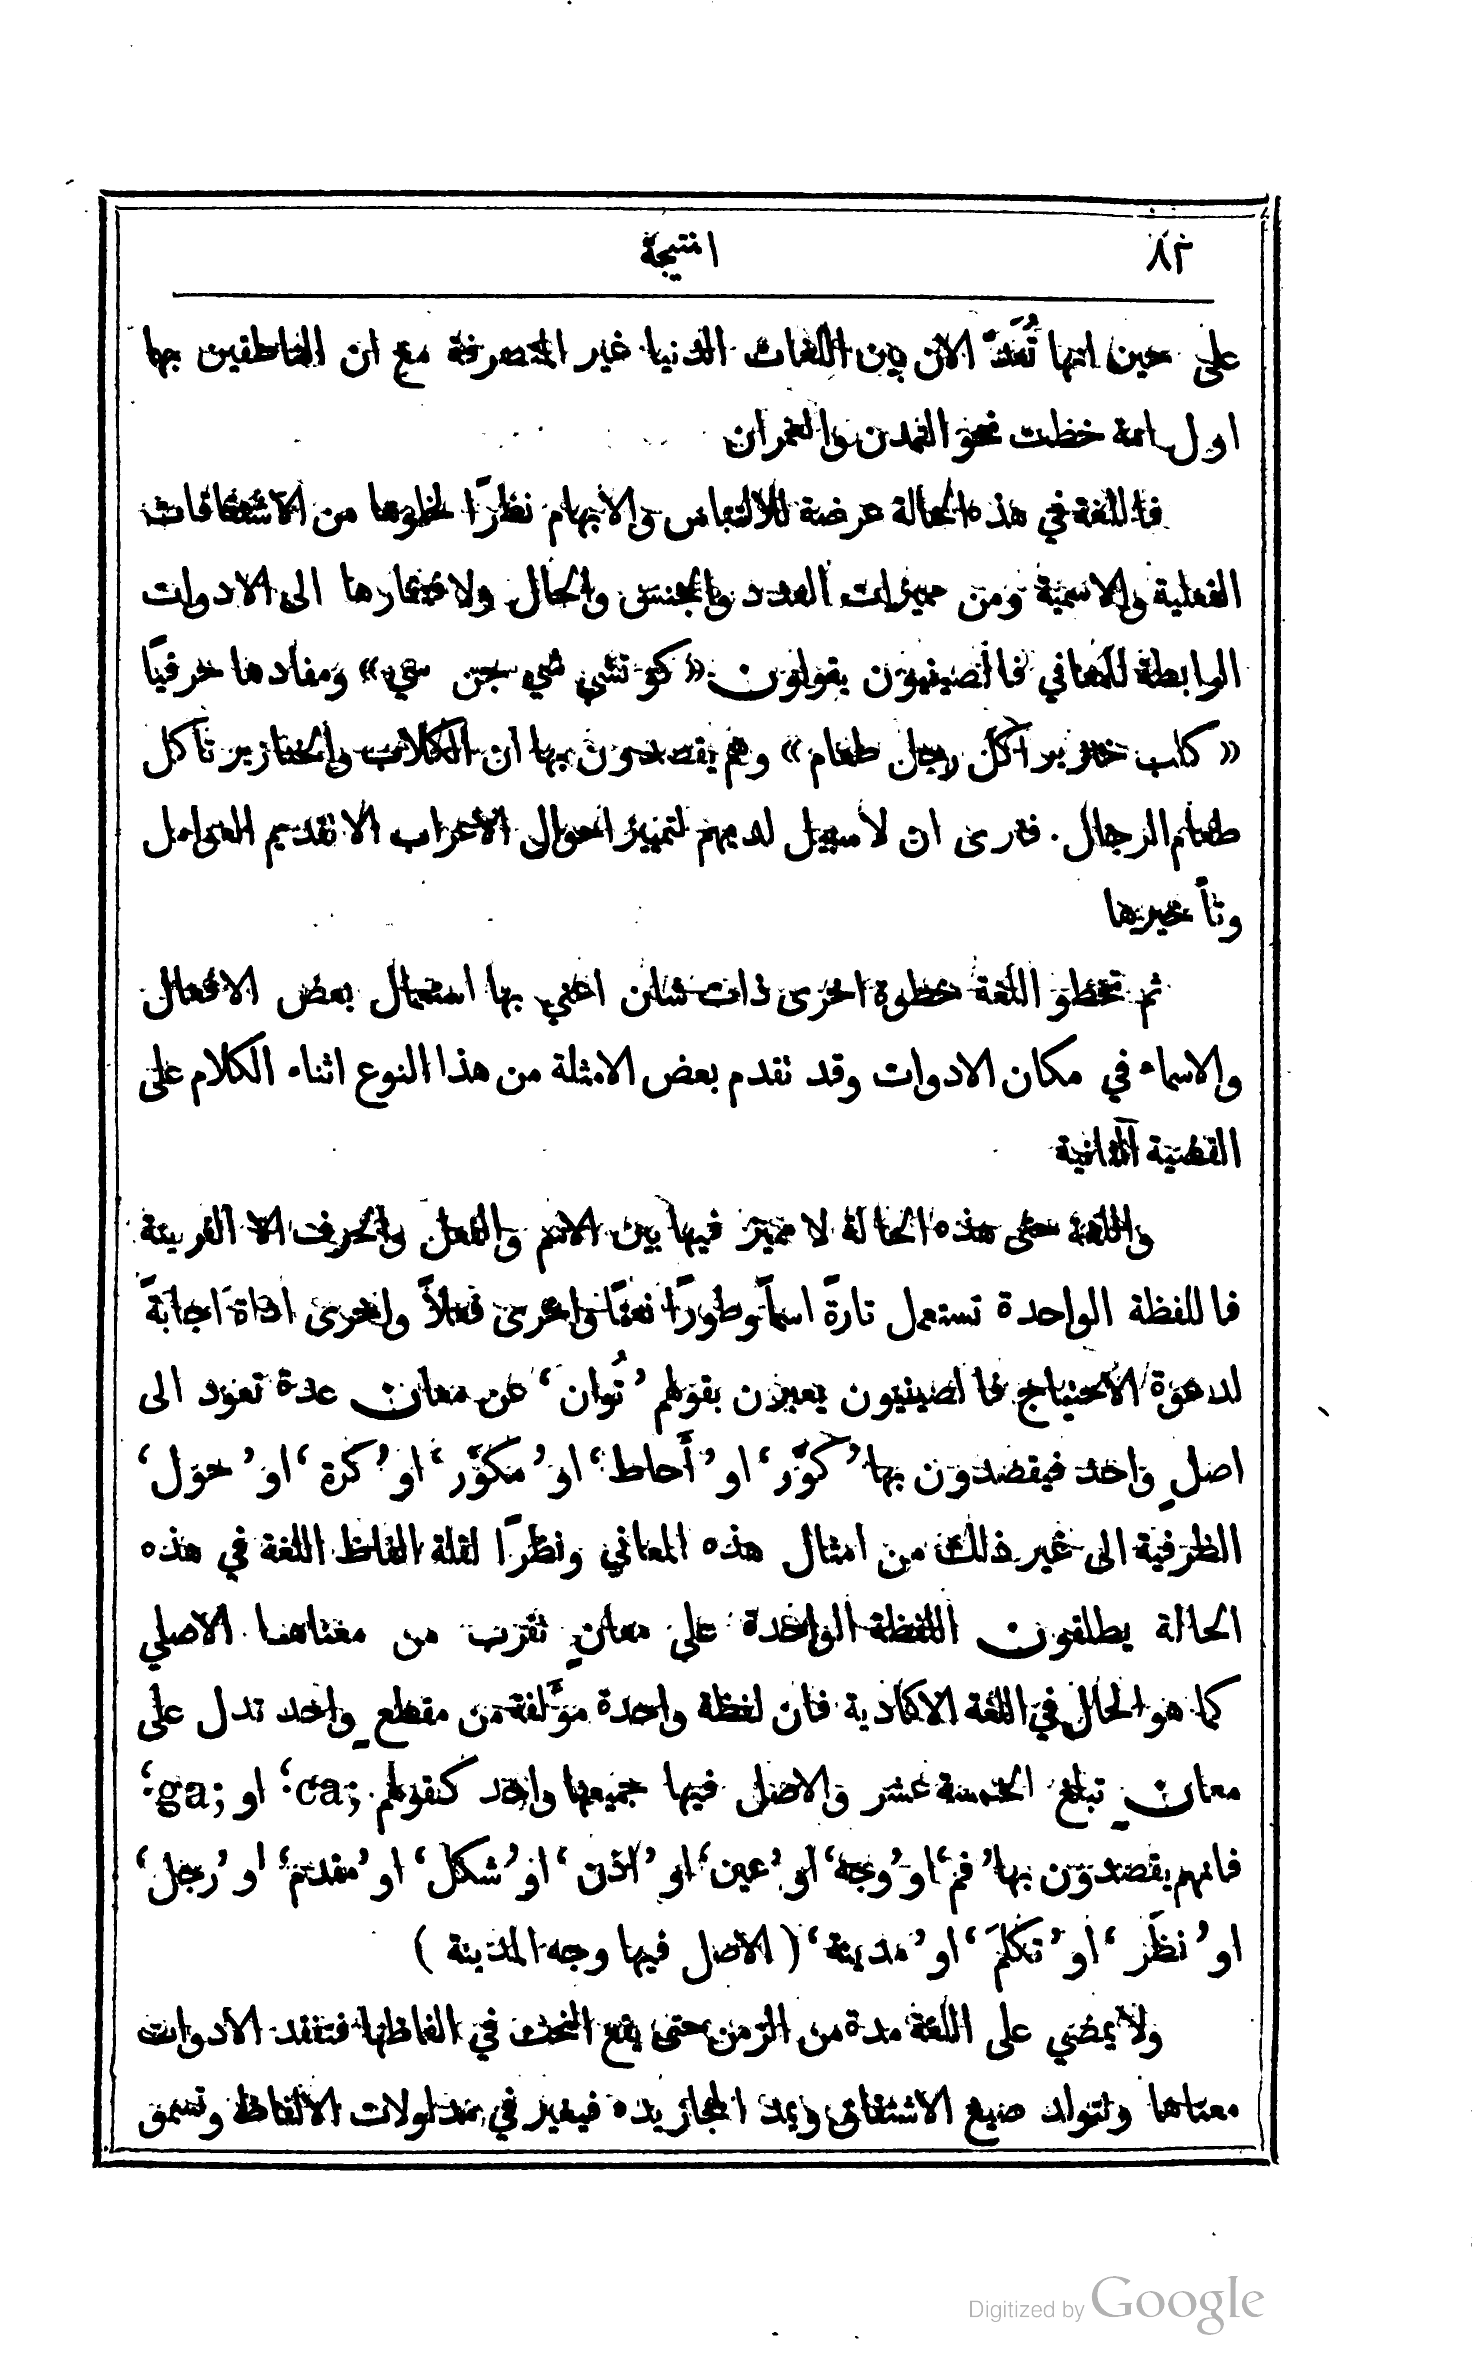 ٨٢
النتيجة
على حين انها تُعَدّ الآن بين اللغات الدنيا غير المتصرفة مع ان الناطقين بها
اول امة خطت نحو التمدن والعمران
فاللغة في هذه الحالة عرضة للالتباس والابهام نظرًا لخلوها من الاشتقاقات
الفعلية والاسمية ومن مميزات العدد والجنس والحال ولافتقارها الى الادوات
الرابطة للمعاني فالصينيون يقولون «كو تشي شي جن سي» ومفادها حرفيًا
«كلب خنزير اكل رجل طعام» وهم يقصدون بها ان الكلاب والخنازير تأكل
طعام الرجال. فترى ان لا سبيل لديهم لتمييز احوال الاعراب الا تقديم العوامل
وتأخيرها
ثم تخطو اللغة خطوة اخرى ذات شان اعني بها استعمال بعض الافعال
والاسماء في مكان الادوات وقد تقدم بعض الامثلة من هذا النوع اثناء الكلام على
القضية الثانية
واللغة حتى هذه الحالة لا مميز فيها بين الاسم والفعل والحرف الا القرينة
فاللفظة الواحدة تستعمل تارةً اسمًا وطورًا نعتًا واخرى فعلاً واخرى اداة اجابةً
لدعوة الاحتياج فالصينيون يعبرن بقولهم ’تُوان‘ عن معان عدة تعود الى
اصلٍ واحد فيقصدون بها ’كوَّر‘ او ’أَحاط‘ او ’مكوَّر‘ او ’كرة‘ او ’حول‘
الظرفية الى غير ذلك من امثال هذه المعاني ونظرًا لقلة الفاظ اللغة في هذه
الحالة يطلقون اللفظة الواحدة على معانٍ تقرب من معناها الاصلي
كما هو الحال في اللغة الاكادية فان لفظة واحدة مؤَلفة من مقطعٍ واحد تدل على
معانٍ تبلغ الخمسة عشر والاصل فيها جميعها واحد كقولهم ;ca‘ او ;ga‘
فانهم يقصدون بها ’فم‘ او ’وجه‘ او ’عين‘ او ’اذن‘ او ’شكل‘ او ’مقدم‘ او ’رجل‘
او ’نظَر‘ او ’تكلمَ‘ او ’مدينة‘ (الاصل فيها وجه المدينة)
ولا يمضي على اللغة مدة من الزمن حتى يقع النحت في الفاظها فتفقد الادوات
معناها وتتولد صيغ الاشتقاق ويمد المجاز يده فيغير في مدلولات الالفاظ وتسمق
Digitized by Google